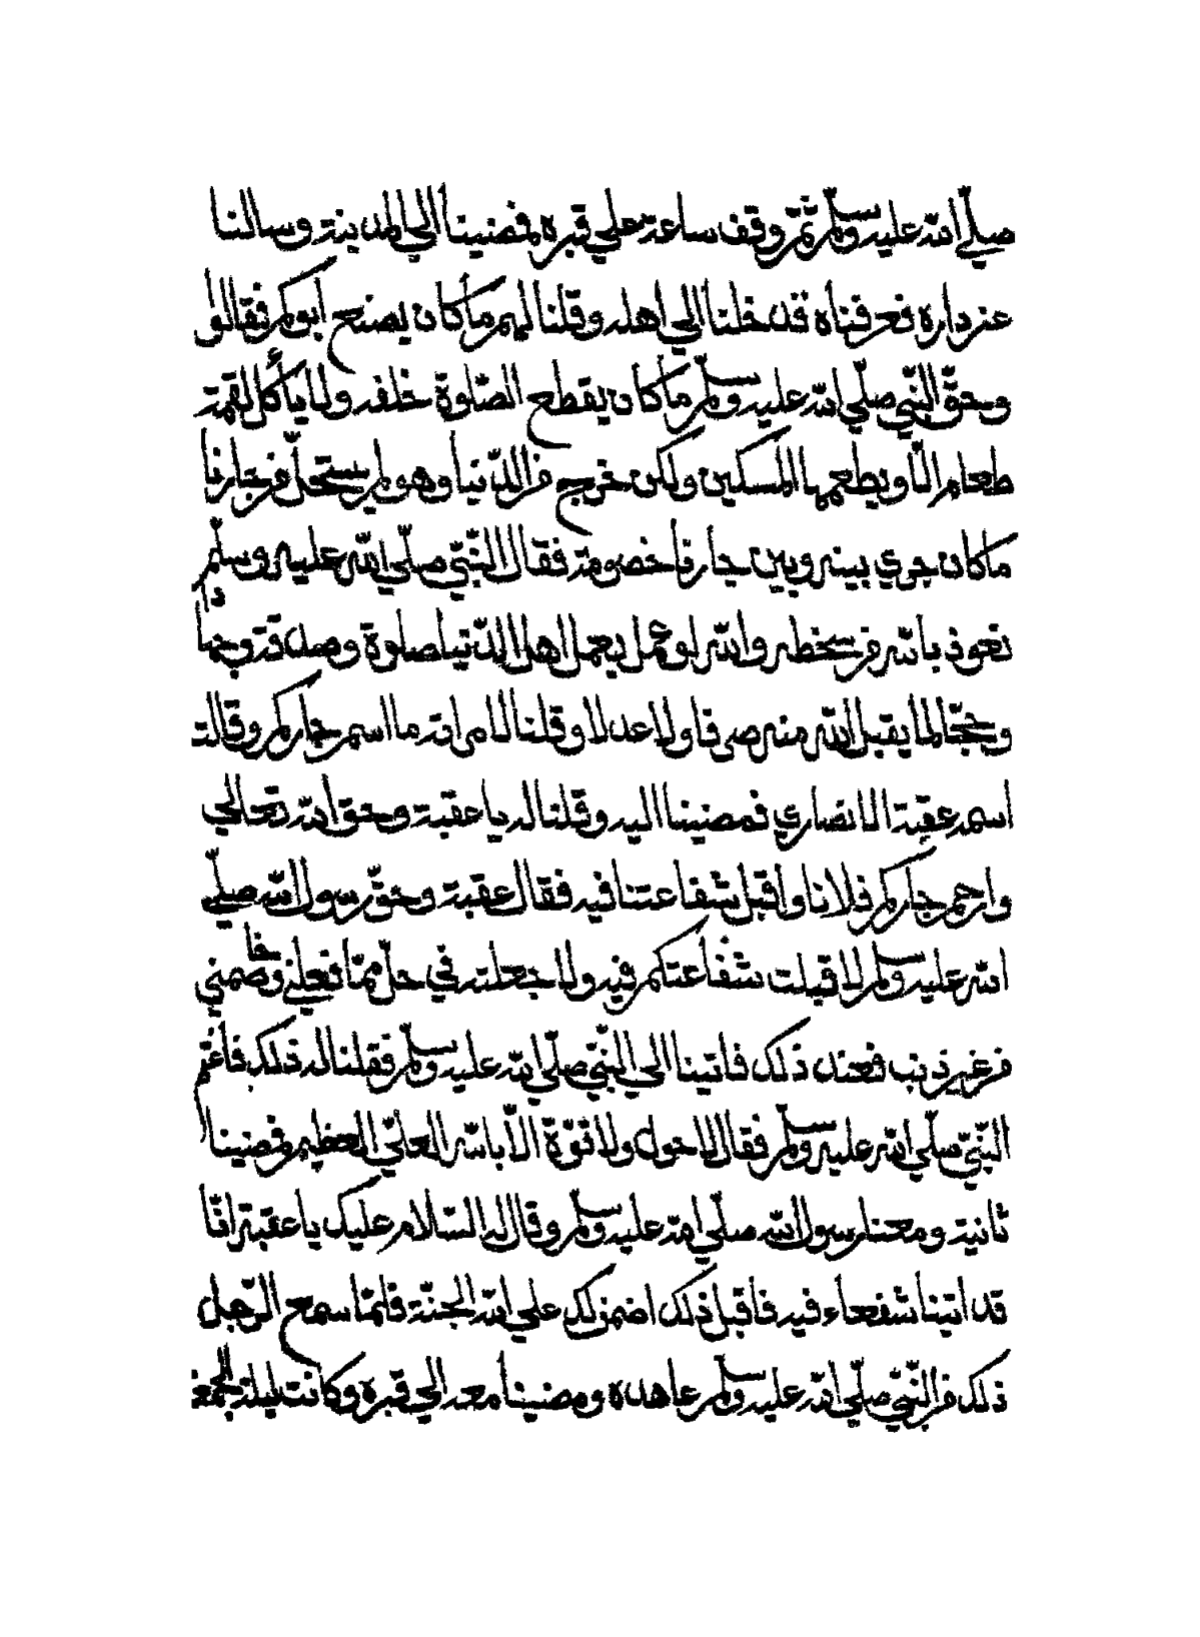 صلّي الله عليه وسلم ثمّ وقف ساعة علي قبره فمضينا الي المدينة وسالنا
عن داره فعرفناه قد خلنا الي اهله وقلنا لهم ما كان يصنع ابوكم فقالوا
وحقّ النّبي صلّي الله عليه وسلم ما كان يقطع الصّلوة خلفه ولا ياكل لقمة
طعام الّا ويطعمها المسكين ولكن خرج من الدّنيا وهو لم يستحلّ من جارنا
ما كان جري بينه وبين جارنا خصومة فقال النّبيّ صلّي الله عليه وسلّم
نعوذ بالله من سخطه والله لو عمل بعمل اهل الدّنيا صلوة وصدقة وجهادا
وحجّا لما يقبل الله منه صرفا ولا عدلا وقلنا لامراته ما اسم جاركم وقالت
اسمه عقبة الانصاري فمضينا اليه وقلنا له يا عقبة وحق الله تعالي
وارحم جاركم فلانا واقبل شفاعتنا فيه فقال عقبة وحقّ رسول الله صلّي
الله عليه وسلم لا قبلت شفاعتكم فيه ولا جعلته في حلّ ممّا فعلني وخاصمني
من غير ذنب فعند ذلك فاتينا الي النّبيّ صلّي الله عليه وسلم فقلنا له ذلك فاغتم
النّبيّ صلّي الله عليه وسلم فقال لا حول ولا قوّة الّا بالله العليّ العظيم فمضينا
ثانية ومعنا رسول الله صلّي الله عليه وسلم وقال له السّلام عليك يا عقبة انّا
قد اتينا شفعاء فيه فاقبل ذلك اضمن لك علي الله الجنّة فلمّا سمع الرّجل
ذلك من النّبيّ صلّي الله عليه وسلم عاهده ومضينا معه الي قبره وكانت ليلة الجمعة